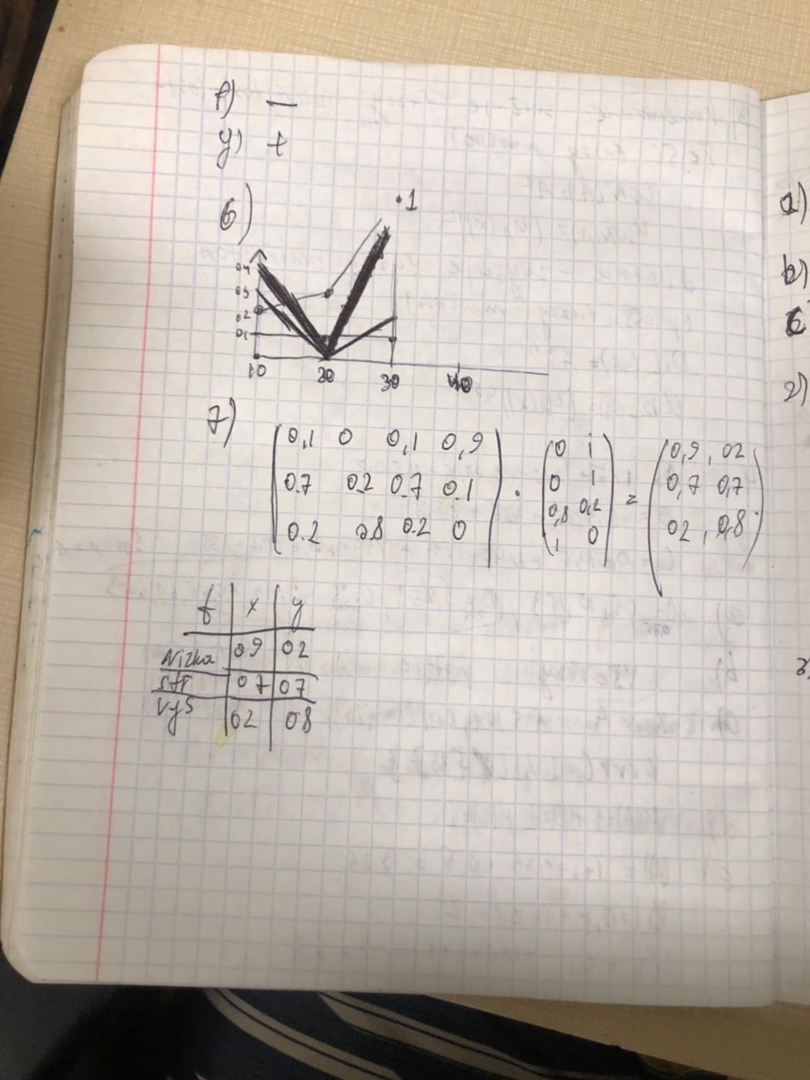 f) —
y) +
6)
.1
0.4
0.3
0.2
0.1
10 20 30 40
7)
0,1 0 0,1 0,9
0.7 0.2 0.7 0.1
0.2 0.8 0.2 0
·
0 1
0 1
0,8 0,2
1 0
=
0,9, 02
0,7 0,7
02, 0,8
f x y
Nizka 09 02
stř 07 07
vys 02 08
a)
b)